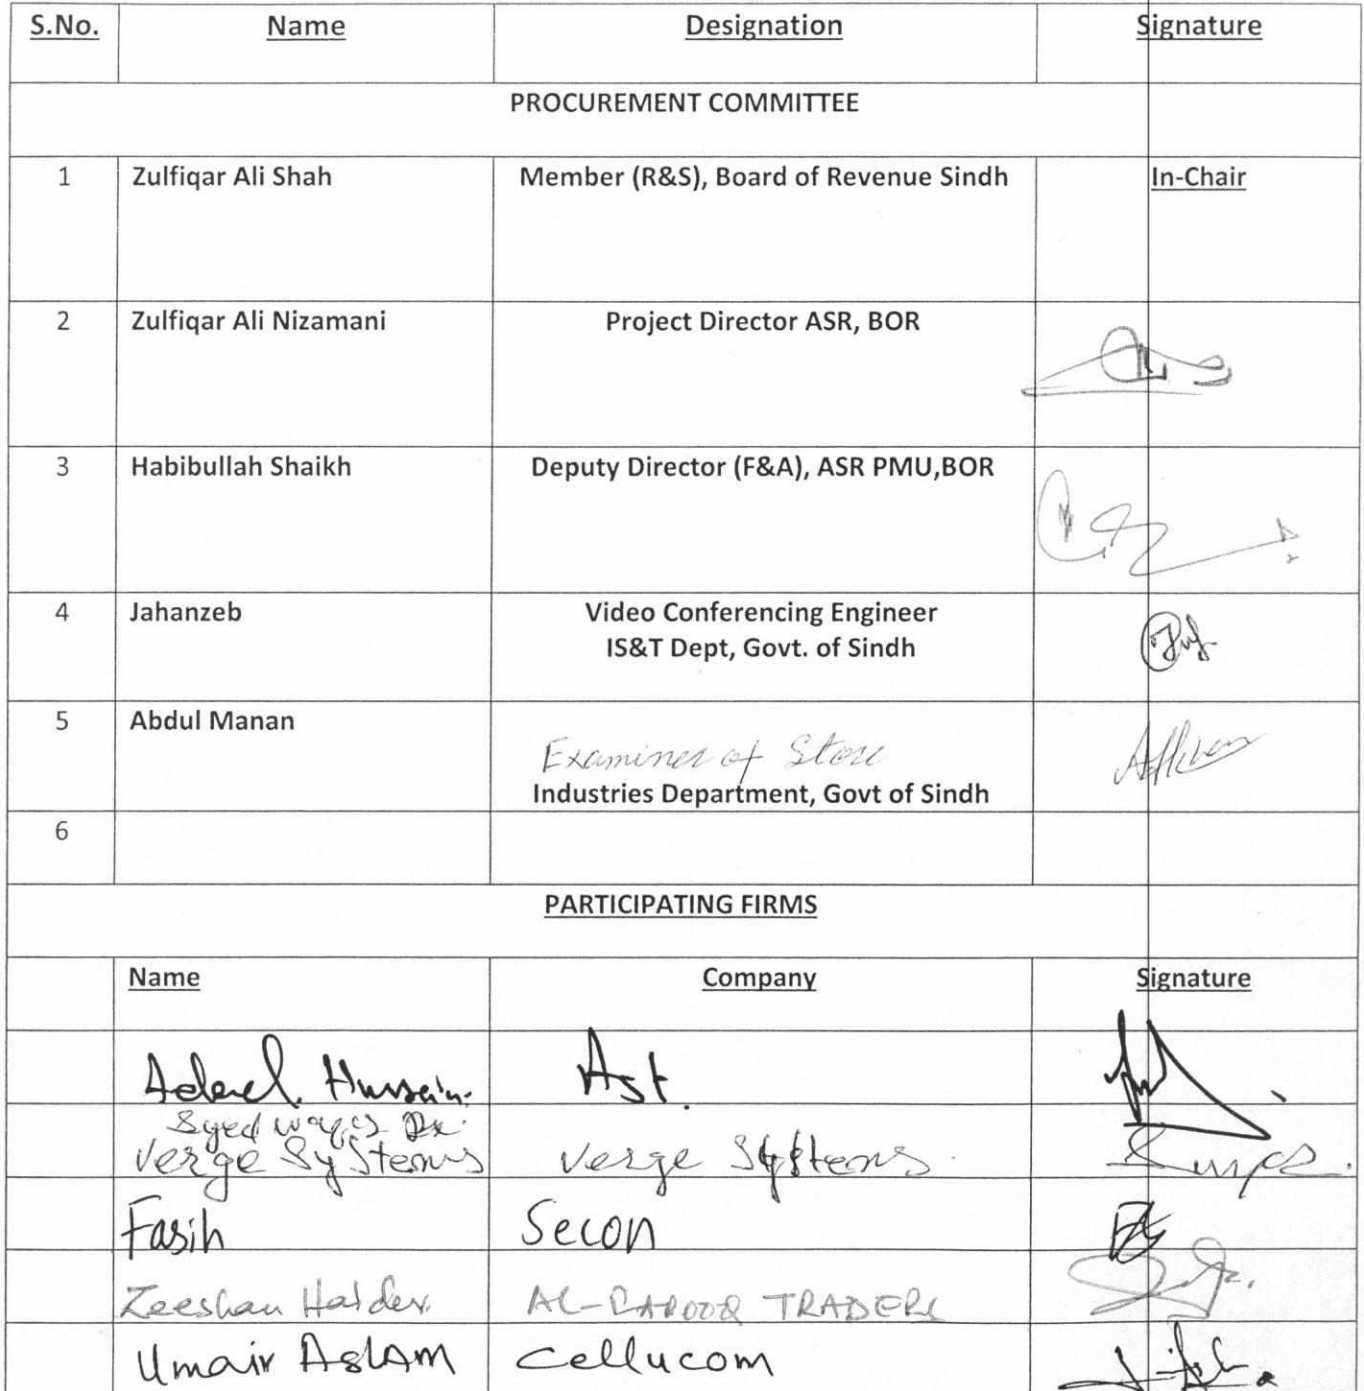 S.No. Name Designation Signature
PROCUREMENT COMMITTEE
1 Zulfiqar Ali Shah Member (R&S), Board of Revenue Sindh In-Chair
2 Zulfiqar Ali Nizamani Project Director ASR, BOR
3 Habibullah Shaikh Deputy Director (F&A), ASR PMU,BOR
4 Jahanzeb Video Conferencing Engineer
IS&T Dept, Govt. of Sindh
5 Abdul Manan
Examiner of Store
Industries Department, Govt of Sindh
6
PARTICIPATING FIRMS
Name Company Signature
Adeel Hussain. Ast.
Syed
Verge Systems Verge Systems.
Fasih Secon
Zeeshan Haider. AL-FAROOQ TRADERS
Umair Aslam Cellucom